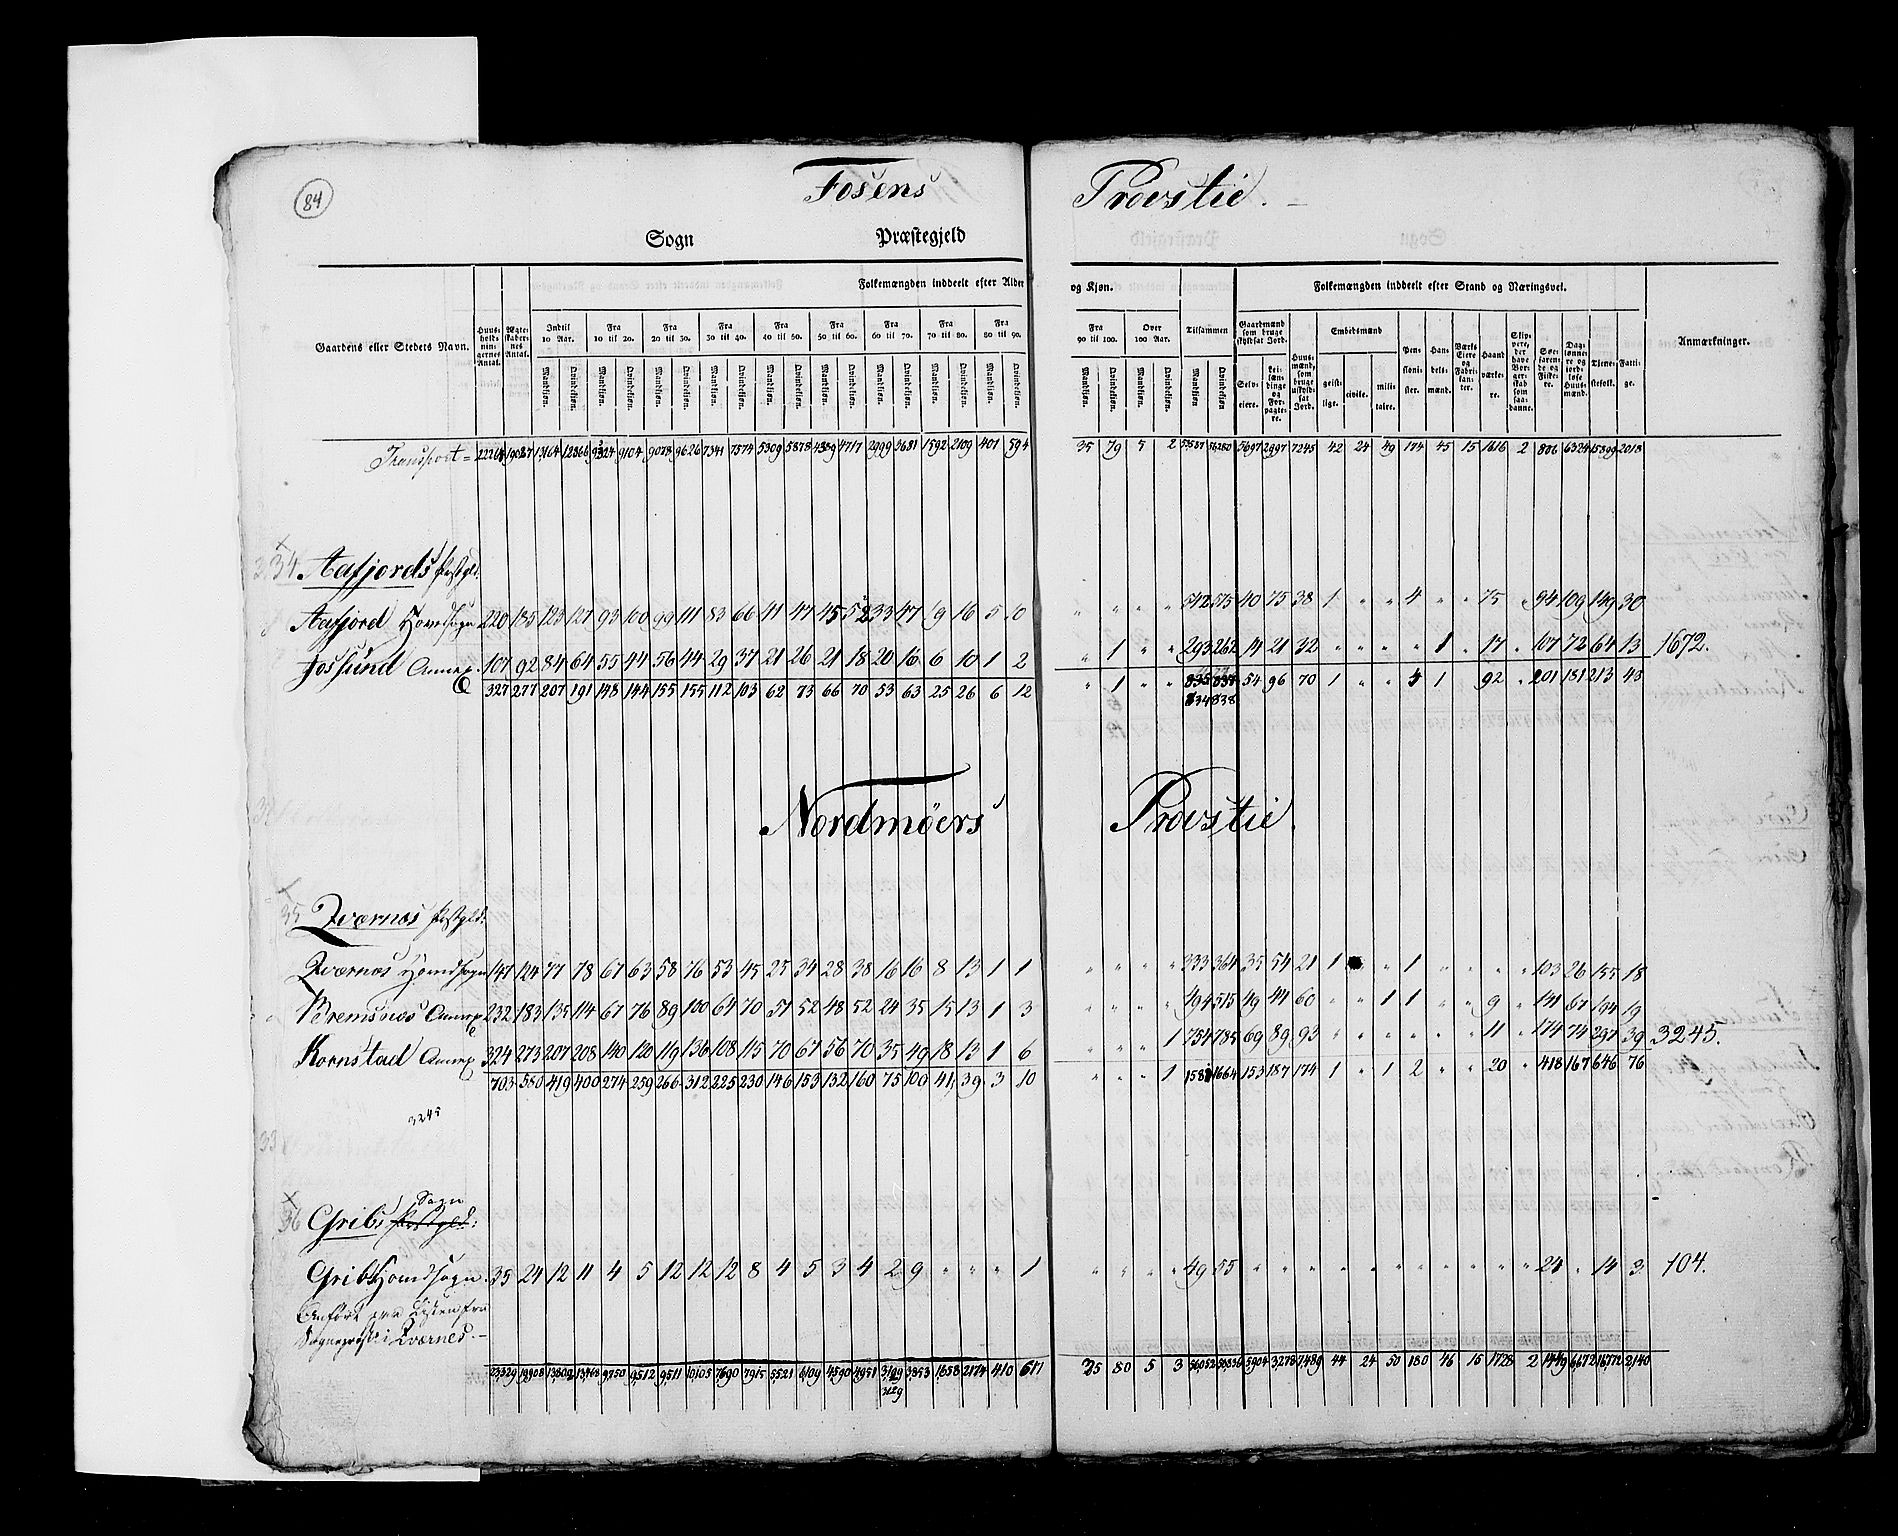 84
Fosens Provstie.
Sogn Præstegjeld
Gaardens eller Stedets Navn.
Huusholdningernes Antal.
Ægteskabernes Antal.
Folkemængden inddeelt efter Alder og Kjøn.
Indtil 10 Aar. Fra 10 til 20. Fra 20 til 30. Fra 30 til 40. Fra 40 til 50. Fra 50 til 60. Fra 60 til 70. Fra 70 til 80. Fra 80 til 90. Fra 90 til 100. Over 100 Aar. Tilsammen
Mandkiøn. Qvindekiøn. Mandkiøn. Qvindekiøn. Mandkiøn. Qvindekiøn. Mandkiøn. Qvindekiøn. Mandkiøn. Qvindekiøn. Mandkiøn. Qvindekiøn. Mandkiøn. Qvindekiøn. Mandkiøn. Qvindekiøn. Mandkiøn. Qvindekiøn. Mandkiøn. Qvindekiøn. Mandkiøn. Qvindekiøn. Mandkiøn. Qvindekiøn.
Folkemængden inddeelt efter Stand og Næringsvei.
Gaardmænd som bruge skyldsat Jord.
Selveiere. Leilændinge og Forpagtere.
Huusmænd, som bruge uskyldsat Jord.
Embedsmænd
geistlige. civile. militaire.
Pensionister. Handelsmænd. Værks Eiere og Fabrikanter. Haandværkere.
Slippere, der have Borgerskab som saadanne.
Søefarende og Fiskere.
Daglønnere og jordløse Huusmænd.
Tienestefolk. Fattige.
Anmærkninger.
Transport = 19087 12366 9104 9078 9626 7341 7574 5309 5878 4717 2999 3681 1592 2109 401 594 35 79 5 2 5697 2997 7245 42 24 49 174 45 15 1616 2 6324 15899 2018
34 Aafjords Præstgjld:
Aafjord Hovedsogn 220 185 123 127 93 100 99 111 83 66 41 47 45 52 33 47 19 16 5 10 " " " " 542 575 40 75 38 1 " " 4 " " 75 " 94 109 149 30
Jossund Annex 107 92 84 64 55 44 56 44 29 37 21 26 21 18 20 16 6 10 1 2 " 1 " " 293 262 14 21 32 " " " " 1 " 17 " 107 72 64 13 1672.
327 277 207 191 148 144 155 155 112 103 62 73 66 70 53 63 25 26 6 12 " 1 " " 835 837 54 96 70 1 " " 4 1 92 " 201 181 213 43
834 838
Nordmöers Provstie.
35 Qværnes Præstgjld:
Qværnes Hovedsogn 147 124 77 78 67 63 58 76 53 45 25 34 28 38 16 16 8 13 1 1 " " " " 333 364 35 54 21 1 " 1 " " " " 103 26 155 18
Bremsnæs Annex 232 183 135 114 67 76 89 100 64 70 51 52 48 52 24 35 15 13 1 3 " " " " 494 515 49 44 60 " " 1 1 " " 9 " 141 67 194 19
Kornstad Annex 324 273 207 208 140 120 119 136 108 115 70 67 56 70 35 49 18 13 1 6 " " " 1 754 785 69 89 93 " " " " " " 11 " 174 74 297 39 3245.
703 580 419 400 274 259 266 312 225 230 146 153 132 160 75 100 41 39 3 10 " " " 1 1581 1664 153 187 174 1 " 1 2 " " 20 " 418 167 646 76
3245
36 Grib Sogn Præstgjld:
Grib Hovedsogn. 35 24 12 11 4 5 12 12 12 8 4 5 3 4 2 9 " " " 1 " " " " 49 55 " " " " " " " " " " " 24 " 14 3 104.
Anført paa Listen fra
Sognepræst. i Qværnes.
23329 13468 9750 9512 9511 10105 7690 7915 5521 6109 4590 4951 3853 1658 2174 410 617 35 80 5 3 5904 3278 7489 44 24 50 180 46 15 1728 2 1449 6672 16772 2140
3129